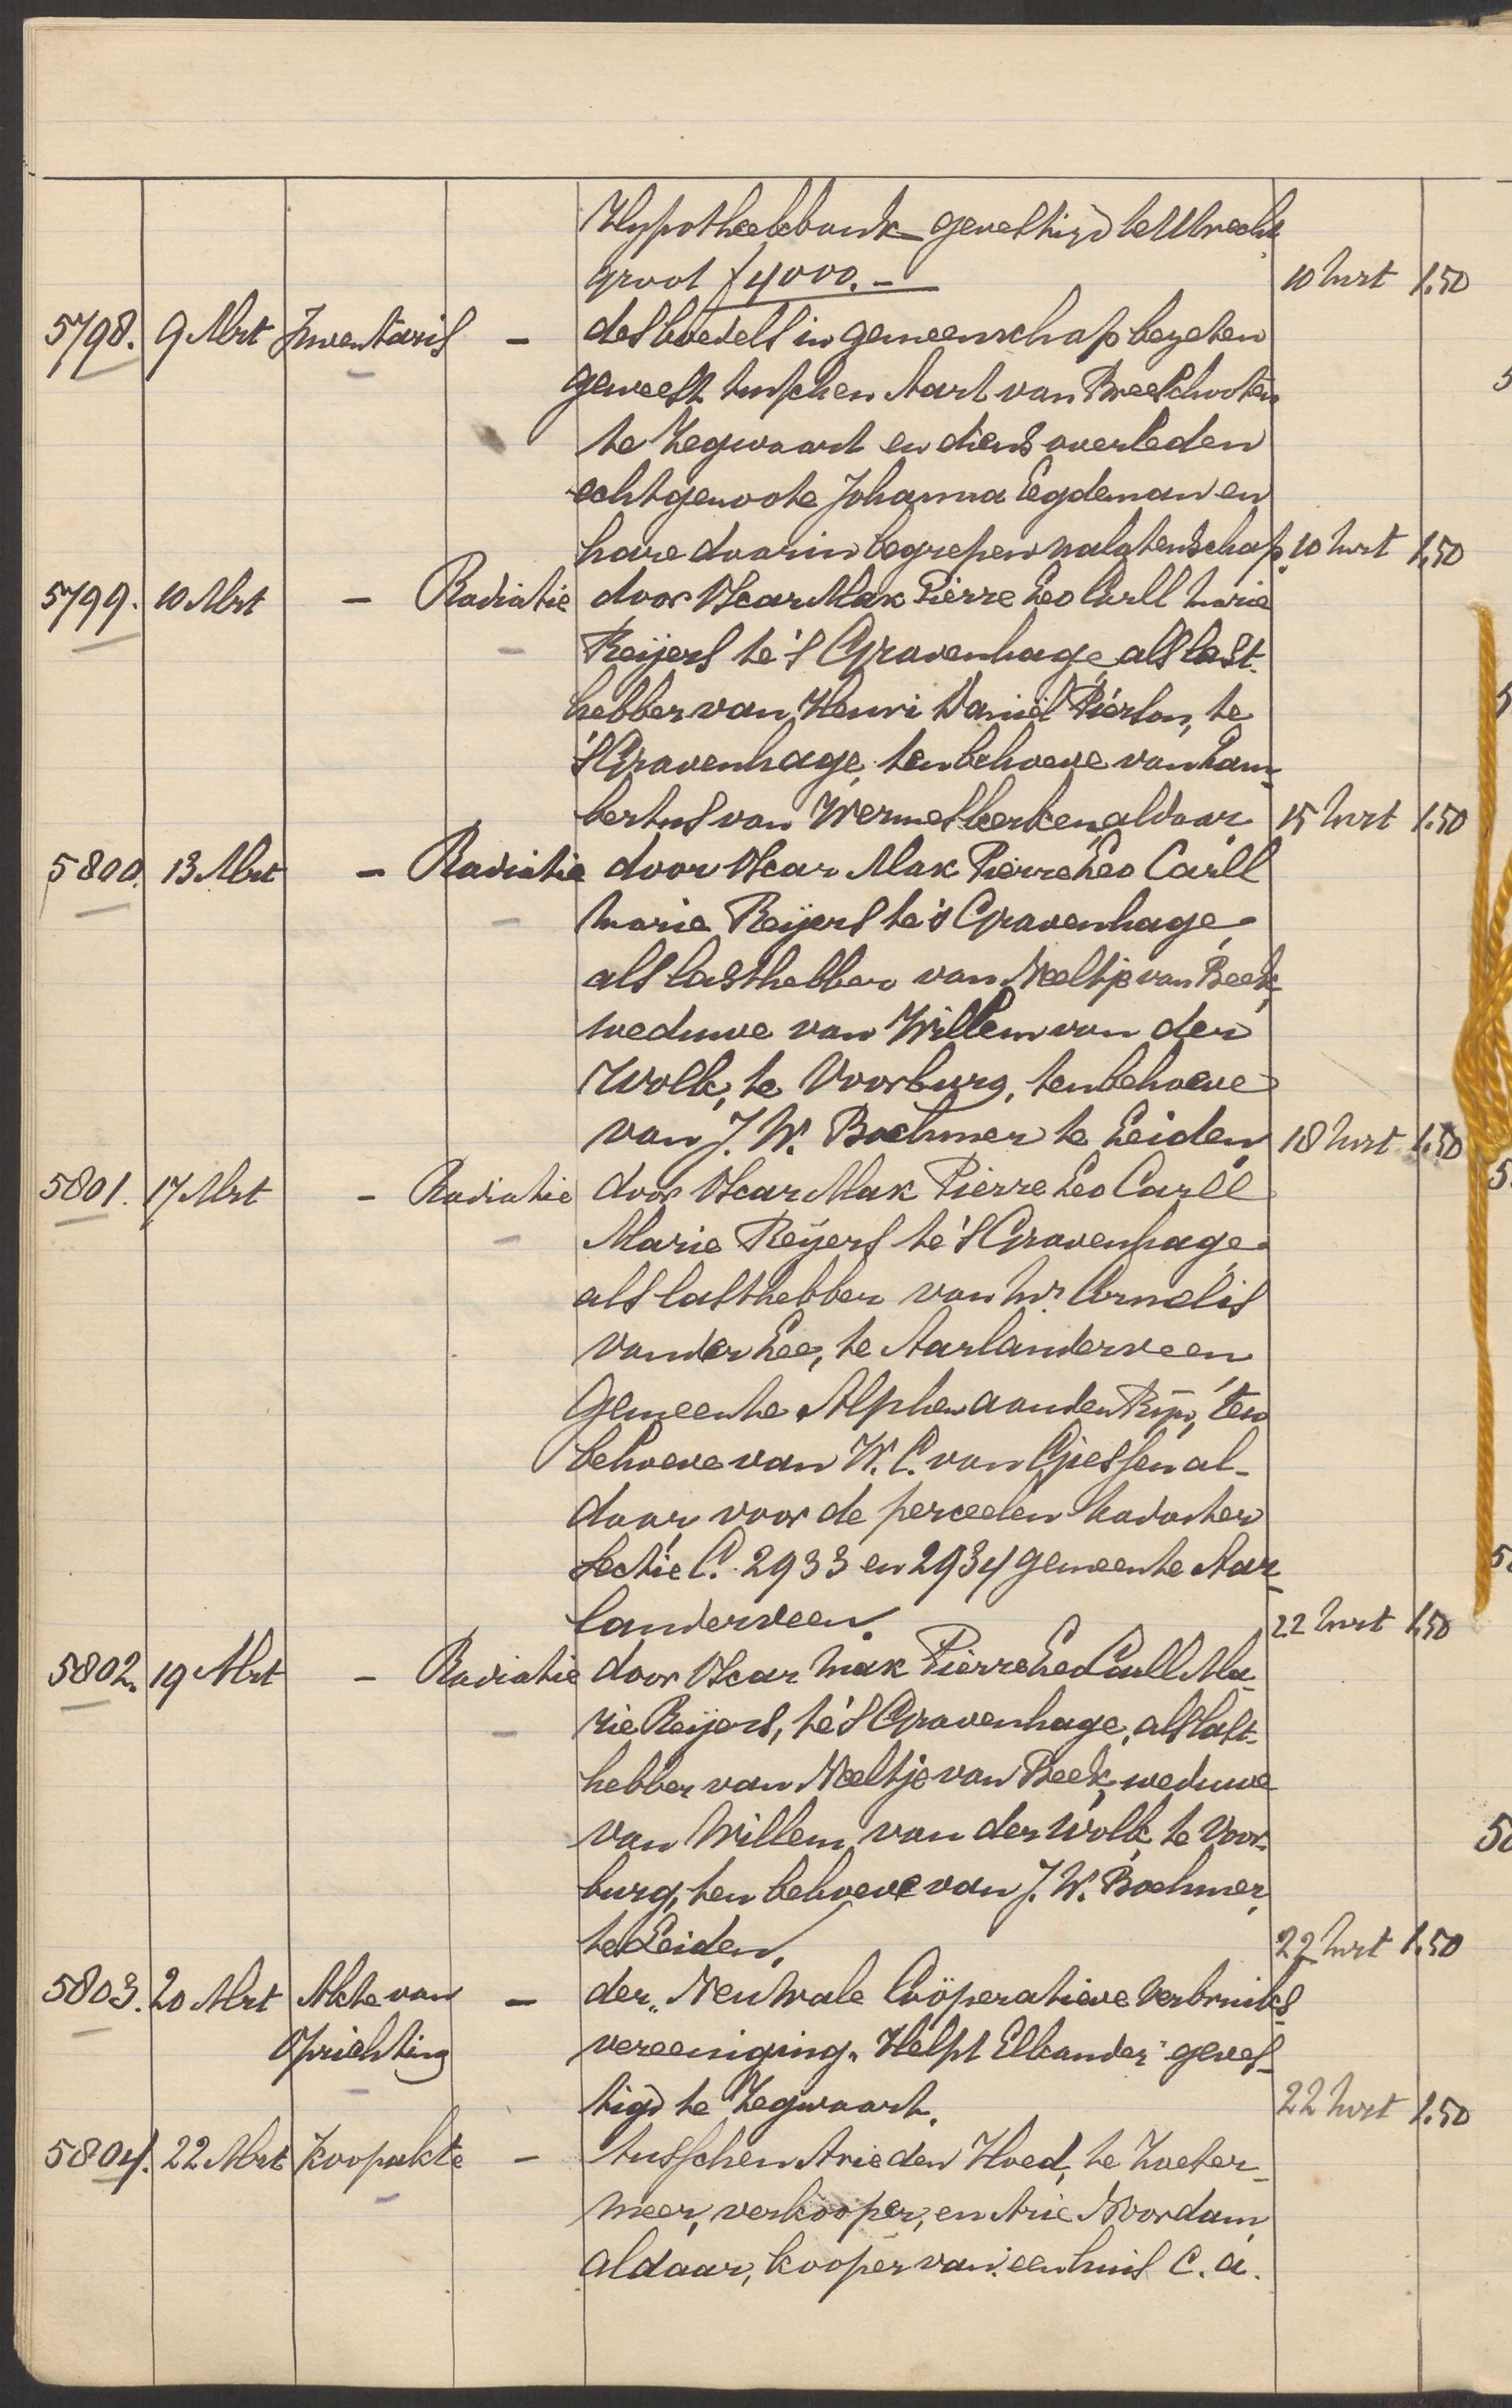 Hypotheekbank gevestigd te Utrecht
groot f 4000.- 10 Mrt 1.50
5798. 9 Mrt Inventaris - des boedels in gemeenschap bezeten
geweest tusschen Aart van Breeschooten
te Zegwaart en diens overleden
echtgenoote Johanna Eegdeman en
hare daarin begrepen nalatenschap. 10 Mrt 1.50
5799. 10 Mrt - Radiatie door Oscar Max Pierre Leo Carll Marie
Reijers te 's Gravenhage, als last-
hebber van Henri Daniël Pierson, te
's Gravenhage, ten behoeve van Lam-
bertus van Wermeskerken, aldaar. 15 Mrt 1.50
5800. 13 Mrt - Radiatie door Oscar Max Pierre Leo Carll
Marie Reijers te 's Gravenhage,
als lasthebber van Neeltje van Beek,
weduwe van Willem van der
Wolk, te Voorburg, ten behoeve
van J. W. Boehmer te Leiden. 18 Mrt 1.50
5801. 17 Mrt - Radiatie door Oscar Max Pierre Leo Carll
Marie Reijers te 's Gravenhage,
als lasthebber van Mr Cornelis
van der Lee, te Aarlanderveen
Gemeente Alphen aan den Rijn, ten
behoeve van W. C. van Giessen al-
daar, voor de perceelen kadaster
Sectie C. 2933 en 2934 gemeente Aar-
landerveen. 22 Mrt 1.50
5802. 19 Mrt - Radiatie door Oscar Max Pierre Leo Carll Ma-
rie Reijers, te 's Gravenhage, als last-
hebber van Neeltje van Beek, weduwe
van Willem van der Wolk, te Voor-
burg, ten behoeve van J. W. Boehmer,
te Leiden. 22 Mrt 1.50
5803. 20 Mrt Akte van - der „Neutrale Coöperatieve Verbruiks-
Oprichting vereeniging „Helpt Elkander" geves-
tigd te Zegwaart. 22 Mrt 1.50
5804. 22 Mrt Koopakte - tusschen Arie den Hoed, te Zoeter-
meer, verkooper, en Arie Noordam
aldaar, kooper van een huis c. a.